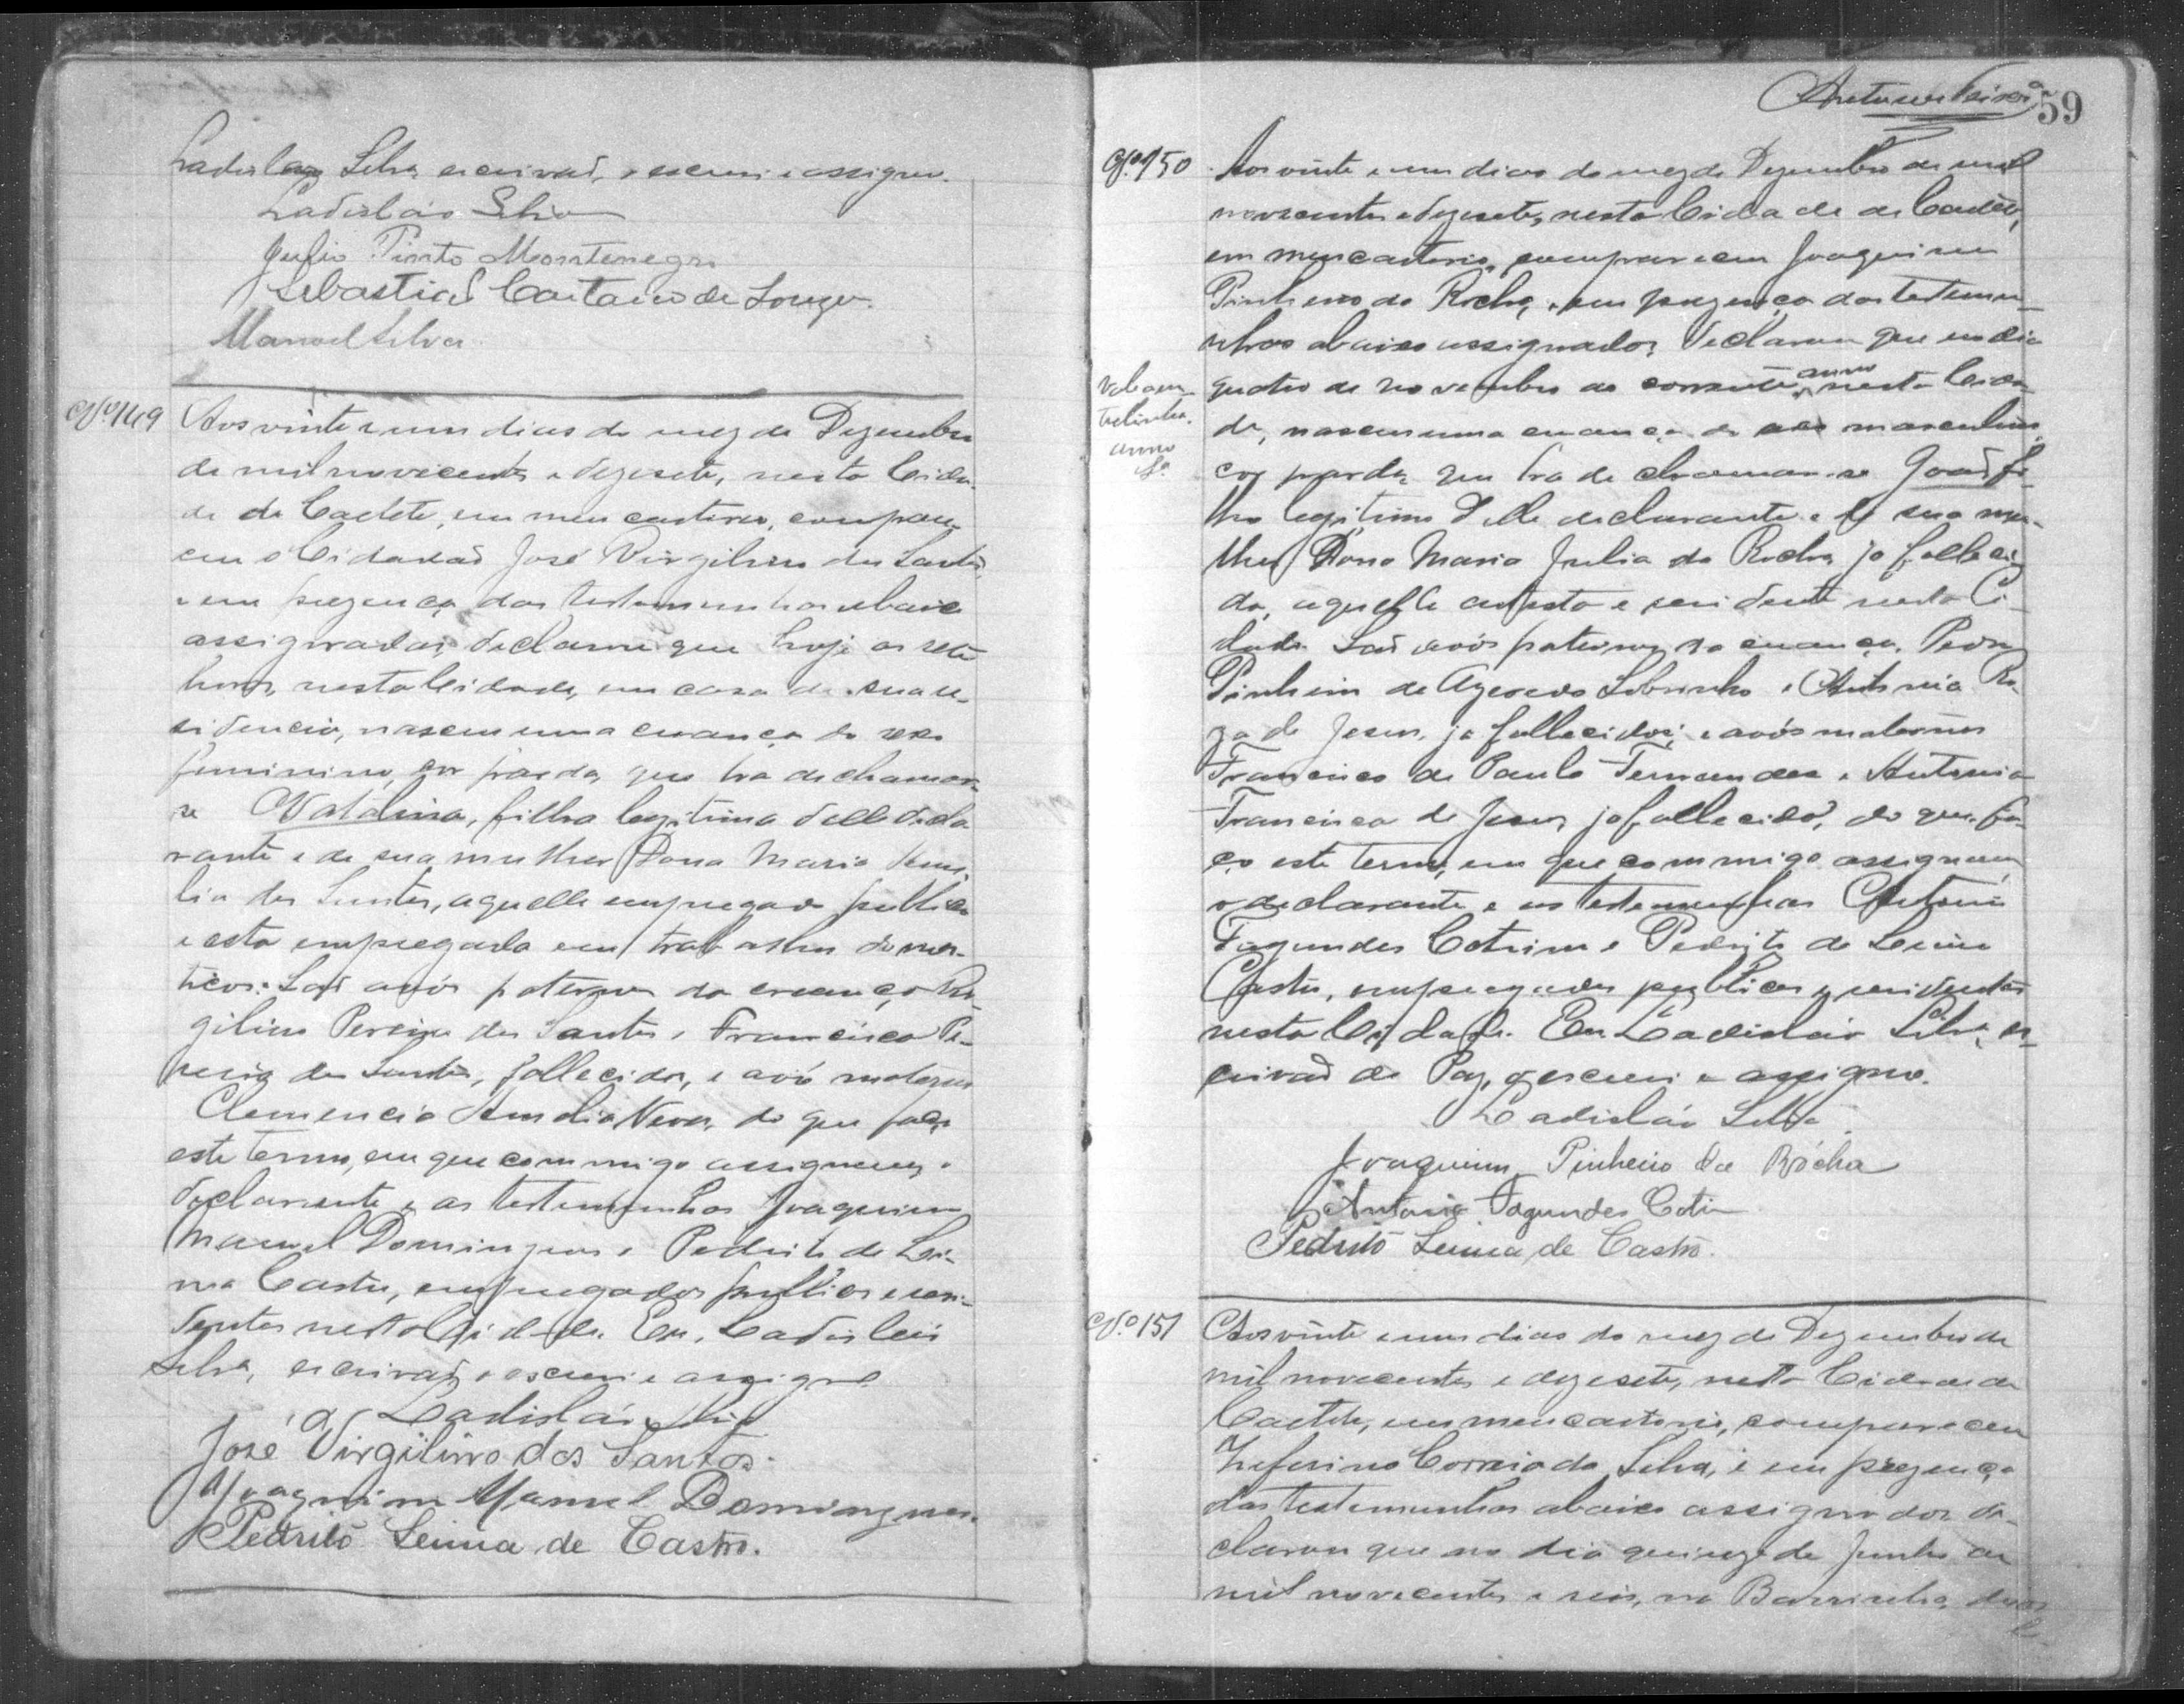 Ladislao Silva escrivaõ, o escrevi e assigno.
Ladisláo Silva
Julio Pinto Montenegro
Sebastiaõ Caetano de Souza
Manoel Silva
Nº 149
Aos vinte e um dias do mez de Dezembro
de mil novecentos e dezesete, nesta Cida-
de de Caeteté, em meu cartorio, compare-
ceu o Cidadaõ José Virgilino dos Santos,
e em prezença das testemunhas abaixo
assignadas, declarou que hoje as sete
horas, nesta Cidade, em casa de sua re-
sidencia, nasceu uma creança do sexo
feminino, cor parda, que ha de chamar-
se Valdina, filha legitima delle decla-
rante e de sua mulher Dona Maria
dos Santos, aquelle empregado publico
e esta empregada em trabalhos domes-
ticos. Saõ avós paternos da creança Vir-
gilino Pereira dos Santos e Francisca Pe-
reira dos Santos, fallecida, e avó materna
Clemencia Amelia Neves, do que faço
este termo, em que commigo assignam o
declarante e as testemunhas Joaquim
Manoel Domingues e Pedrito de Lei-
ma Castro, empregados publicos e resi-
dentes nesta Cidade. Eu, Ladisláo
Silva, escrivaõ, o escrevi e assigno
Ladisláo Silva
José Virgilino dos Santos.
Joaquim Manoel Domingues.
Pedrito Leima de Castro.
59
Nº 150
Aos vinte e um dias do mez de Dezembro de mil
novecentos e dezesete, nesta Cidade de Caeteté,
em meu cartorio, compareceu Joaquim
Pinheiro da Rocha, e em prezença das testemu-
nhas abaixo assignadas, declarou que no dia
quatro de novembro do corrente anno nesta Cida-
de, nasceu uma creança do sexo masculino,
cor parda, que ha de chamar-se Joaõ, fi-
lho legitimo delle declarante e de sua mu-
lher Dona Maria Julia da Rocha, ja falleci-
da, aquelle artista e residente nesta Ci-
dade. Saõ avós paternos da creança, Pedro
Pinheiro de Azevedo Sobrinho e Antonia Ro-
za de Jesus, ja fallecidos; e avós maternos
Francisco de Paula Fernandes e Antonia
Francisca de Jesus, ja fallecida, do que fa-
ço este termo, em que commigo assignam
o declarante e as testemunhas Antonio
Fagundes Cotrim e Pedrito de Leima
Castro, empregados publicos e residentes
nesta Cidade. Eu Ladisláo Silva, es-
crivaõ de Paz, o escrevi e assigno.
Ladisláo Silva
Joaquim Pinheiro da Rócha
Antonio Fagundes Cotrim
Pedrito Leima de Castro.
Vale a en-
trelinha.
anno
Sª
Nº 151
Aos vinte e um dias do mez de Dezembro de
mil novecentos e dezesete, nesta Cidade de
Caeteté, em meu cartorio, compareceu
Zeferino Correia da Silva, e em prezença
das testemunhas abaixo assignadas de-
clarou que no dia quinze de Junho de
mil novecentos e seis, na Barrinha,